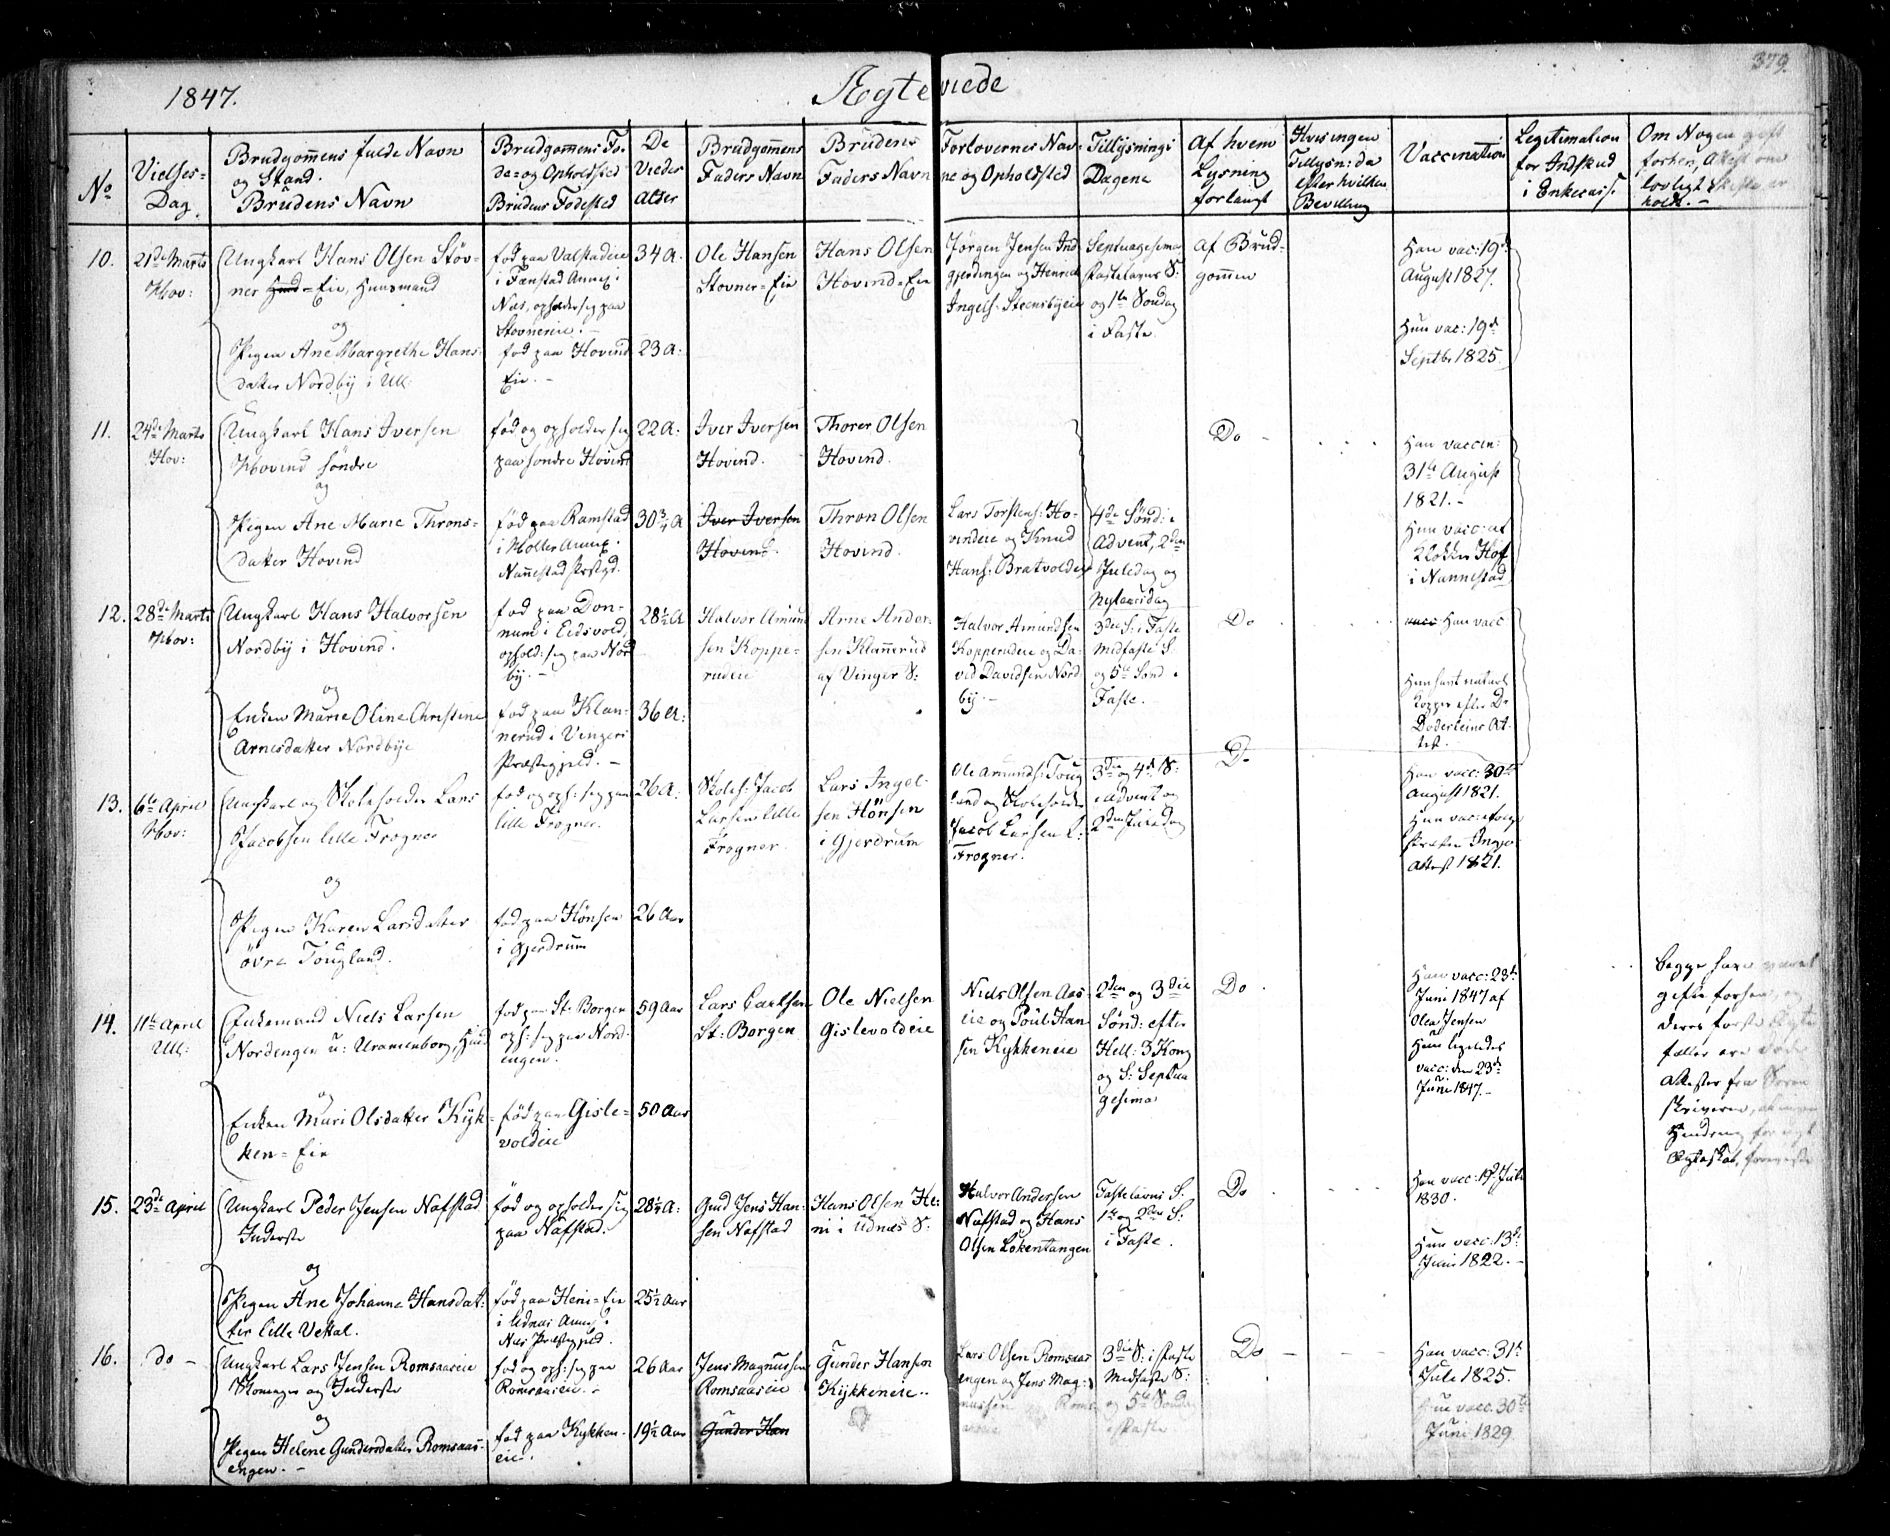 1847.
Ægteviede
379.
No
Vielses-
Dag.
Brudgommens fulde Navn
og Stand.
Brudens Navn
Brudgommens Fø-
de- og Opholdsted
Brudens Fødested
De
Vieder
Alder
Brudgommens
Faders Navn
Brudens
Faders Navn
Forlovernes Nav-
ne og Opholdsted
Tillysnings
Dagene
Af hvem
Lysning
forlangt
Hvis ingen
Tillysn: da
efter hvilken
Bevilling
Vaccination
Legitimation
for Indskud
i Enkecasse
Om Nogen gift
forhen, Attest om
lovligt Skifte er
holdt.-
10.
21de Marts
Hov:
Ungkarl Hans Olsen Støv-
ner Eie, Huusmand
og
Pigen Ane Margrethe Hans-
datter Nordby i Ull:
fød paa Valstadeie
i Fænstad Annex i
Næs, opholder sig paa
Støvnereie.-
fød paa Hovind
Eie.-
34 A:
23 A:
Ole Hansen
Stovner-Eie
Hans Olsen
Hovind-Eie
Jørgen Jensen Ind
gjerdingen og Henrik
Ingels: Steensbyeie
Septuagesima
Fastelavns S:
og 1ste Søndag
i Faste.
Af Brud-
gommen
Han vac: 19de
August 1827.
Hun vac: 19de
Septbr 1825.
11.
24de Marts
Hov:
Ungkarl Hans Iversen
Hovind søndre
og
Pigen Ane Marie Throns-
datter Hovind
fød og opholder sig
paa søndre Hovind
fød paa Ramstad
i Holter Annex
Nannestad Prstgd.
22 A:
30¾ A
Iver Iversen
Hovind.
Iver Iversen
Hovind.
Thorer Olsen
Hovind.
Thron Olsen
Hovind.
Lars Torstens: Ho-
vindeie og Knud
Hans: Bratvoldeie
4de Sønd: i
Advent, 2den
Juledag og
Nytaarsdag
Do -
Han vaccin:
31te August
1821.-
Hun vacc: af
Klokker Hof
i Nannestad
12.
28de Marts
Hov:
Ungkarl Hans Halvorsen
Nordby i Hovind.
og
Enken Marie Oline Christine
Arnesdatter Nordbye
fød paa Don-
num i Eidsvold,
ophold: sig paa Nord
by.-
fød paa Klan-
nerud i Vinger
Præstegjeld.-
28½ A
36 A:
Halvor Amund
sen Koppe-
rudeie
Arne Ander-
sen Klannerud
af Vinger S:
Halvor Amundsen
Kopperudeie og Da-
vid Davidsen Nord
by.-
3die S: i Faste
Midfaste S.
og 5te Sønd i
Faste.
Do
Han vacc
Hun havt naturl
Kopper efter Dr
Doderleins At-
test.
13.
6te April
Hov:
Ungkarl og Skoleholder Lars
Jacobsen lille Frogner
og
Pigen Karen Larsdatter
øvre Tougland.
fød og oph: sig paa
lille Frogner.
fød paa Hønsen
i Gjerdrum
26 A:
26 Aar
Skoleh: Jacob
Larsen lille
Frogner.
Lars Ingel-
sen Hønsen
i Gjerdrum
Ole Amunds: Toug
land og Skoleholder
Jacob Larsen l:
Frogner.
3die og 4de S:
i Advent og
2den Juledag
Do
Han vacc: 30te
August 1821.
Attest 1821.
14.
11te April
Ull:
Enkemand Niels Larsen
Nordengen u: Uranienborg, Huusmd
og
Enken Mari Olsdatter Kyk-
ken-Eie
fød paa St. Borgen
oph: sig paa Nord-
engen.
fød paa Gisle-
voldeie
59 Aar
50 Aar
Lars
St: Borgen
Ole Nielsen
Gislevoldeie
Niels Olsen Aas-
eie og Poul Han
sen Kykkeneie
2den og 3die
Sønd: efter
Hell: 3 Kong
og S: Septua
gesima
Do
Han vacc: 23de
Juni 1847 af
Olea Jensen
Hun ligeledes
vacc: den 23de
Juni 1847.-
begge have været
gifte forhen, og
deres første Ægte
fæller ere døde
Attester fra Soren
skriveren, at ingen
Hindring for nyt
Ægteskab, foreviste
15.
23de April
Ungkarl Peder Jensen Nafstad
Inderste
og
Pigen Ane Johanne Hansdat-
ter lille Vettal.
fød og opholder sig
paa Nafstad.
fød paa Heni-Eie
i Udnæs Annex i
Næs Præstegjeld.
28½ A:
25½ Aar
Gmd Jens Han-
sen Nafstad
Hans Olsen He-
ni i Udnæs S:
Halvor Andersen
Nafstad og Hans
Olsen Løkentangen
Fastelavns S.
1ste og 2den S:
i Faste.
Do
Han vacc: 19de Juli
1830.
Hun vacc: 13de
Juni 1822.-
16.
do -
Ungkarl Lars Jensen Romsaaseie
Skomager og Inderste
og
Pigen Helene Gundersdatter Romsaas-
engen.-
fød og oph: sig paa
Romsaaseie.-
fød paa Kykken-
eie.
26 Aar
19½ Aar
Jens Magnussen
Romsaaseie
Gunder Han
Gunder Hansen
Kykkeneie..
Lars Olsen Romsaas
engen og Jens Mag-
nussen Roms
aaseie
3die S: i Faste
Midfaste S:
og 5te Søndag
i Faste
Do -
Han vacc: 31te
Juli 1825.
Hun vacc. 30te
Juni 1829.